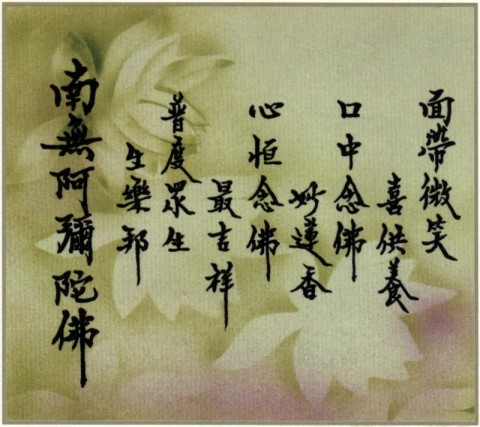 面帶微笑
喜供養
口中念佛
妙蓮香
心恒念佛
最吉祥
普度眾生
生樂邦
南無阿彌陀佛